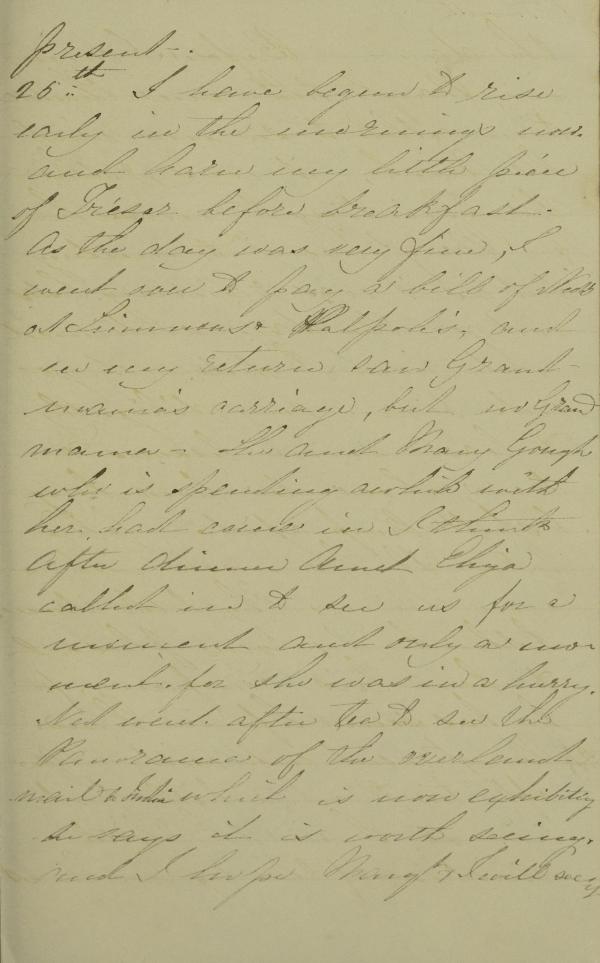 present -.
25th I have begun to rise
early in the mornings now.
and learn my little piece
of Trésor before breakfast.
As the day was very fine, I
went over to pay a bill of Ned's
at Simmons & Walpole's, and
in my return saw Grand-
mama's carriage, but no Grand
mama - She and Mary Gough
who is spending awhile with
her had come in I think
After dinner Aunt Eliza
called in to see us for a
moment and only a mo-
ment. for she was in a hurry.
Ned went after tea to see the
Panorama of the overland
mail to India which is now exhibiting
he says it is worth seeing.
and I hope Mary & I will see